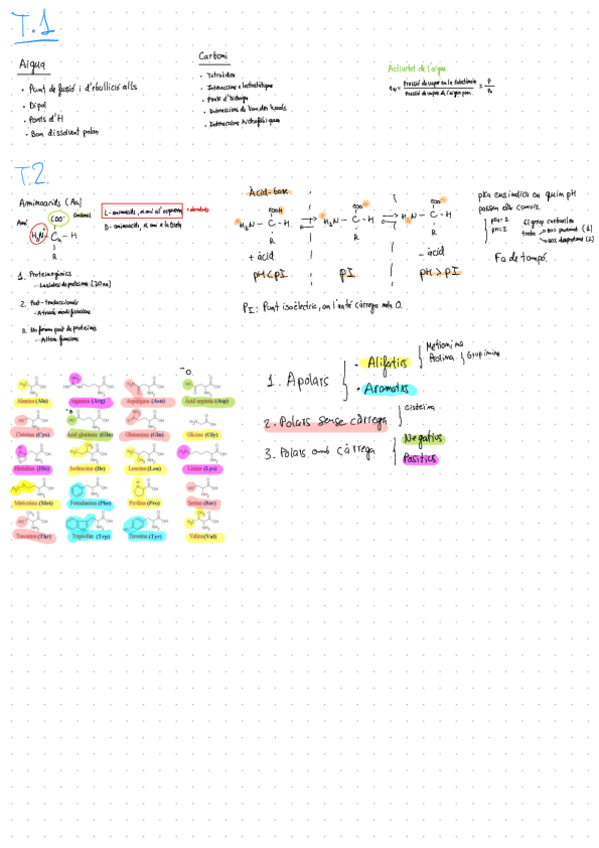 T.1
Aigua
• Punt de fusió i d'ebullició alts
• Dipol
• Ponts d'H
• Bon dissolvent polar
Carboni
• Tetraèdre
• Interaccions electrostàtiques
• Ponts d'hidrogen
• Interaccions de Van der Waals
• Interaccions hidrofòbiques
Activitat de l'aigua
aw = Pressió de vapor en la substància / Pressió de vapor de l'aigua pura = P / P₀
T.2.
Aminoàcids (Aa)
COO⁻
Amí
H₃N⁺ - Cα - H
R
L - aminoàcids, al esquerra
D - aminoàcids, a la dreta
1. Proteinogènics
2. Post-traduccionals
3. No formen part de proteïnes
Àcid-base
COOH COO⁻ COO⁻
H₃N - C - H ⇌ H₃N - C - H ⇌ H₂N - C - H
R R R
+ àcid - àcid
pH<pI pI pH>pI
PI: Punt isoelèctric, on l'Aa té càrrega neta 0.
pKa ens indica en quin pH
passen els canvis.
Fa de tampó.
Alanina (Ala) Arginina (Arg) Asparagina (Asn) Àcid aspàrtic (Asp)
Cisteïna (Cys) Àcid glutàmic (Glu) Glutamina (Gln) Glicina (Gly)
Histidina (His) Isoleucina (Ile) Leucina (Leu) Lisina (Lys)
Metionina (Met) Fenilalanina (Phe) Prolina (Pro) Serina (Ser)
Treonina (Thr) Triptòfan (Trp) Tirosina (Tyr) Valina (Val)
1. Apolars
• Alifàtics
Metionina
Prolina } Grup imino
• Aromàtics
2. Polars sense càrrega
Cisteïna
3. Polars amb càrrega
Negatius
Positius